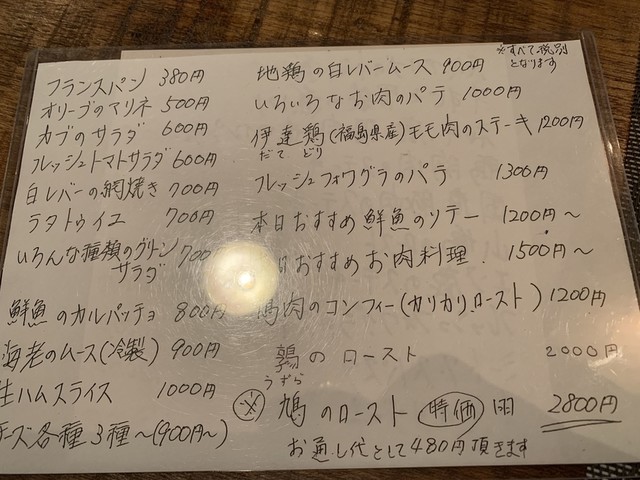 フランスパン 380円
オリーブのマリネ 500円
カブのサラダ 600円
フレッシュトマトサラダ 600円
白レバーの網焼き 700円
ラタトゥイユ 700円
いろんな種類のグリーン
サラダ 700
鮮魚のカルパッチョ 800円
海老のムース(冷製) 900円
生ハムスライス 1000円
チーズ各種3種〜(900円〜)
※すべて税別
となります
地鶏の白レバームース 900円
いろいろなお肉のパテ 1000円
伊達鶏(福島県産)モモ肉のステーキ 1200円
だて どり
フレッシュフォワグラのパテ 1300円
本日おすすめ鮮魚のソテー 1200円〜
おすすめお肉料理. 1500円〜
肉のコンフィー(カリカリ,ロースト) 1200円
鶉のロースト 2000円
うずら
※ 鳩のロースト 時価 2800円
お通し代として480円頂きます